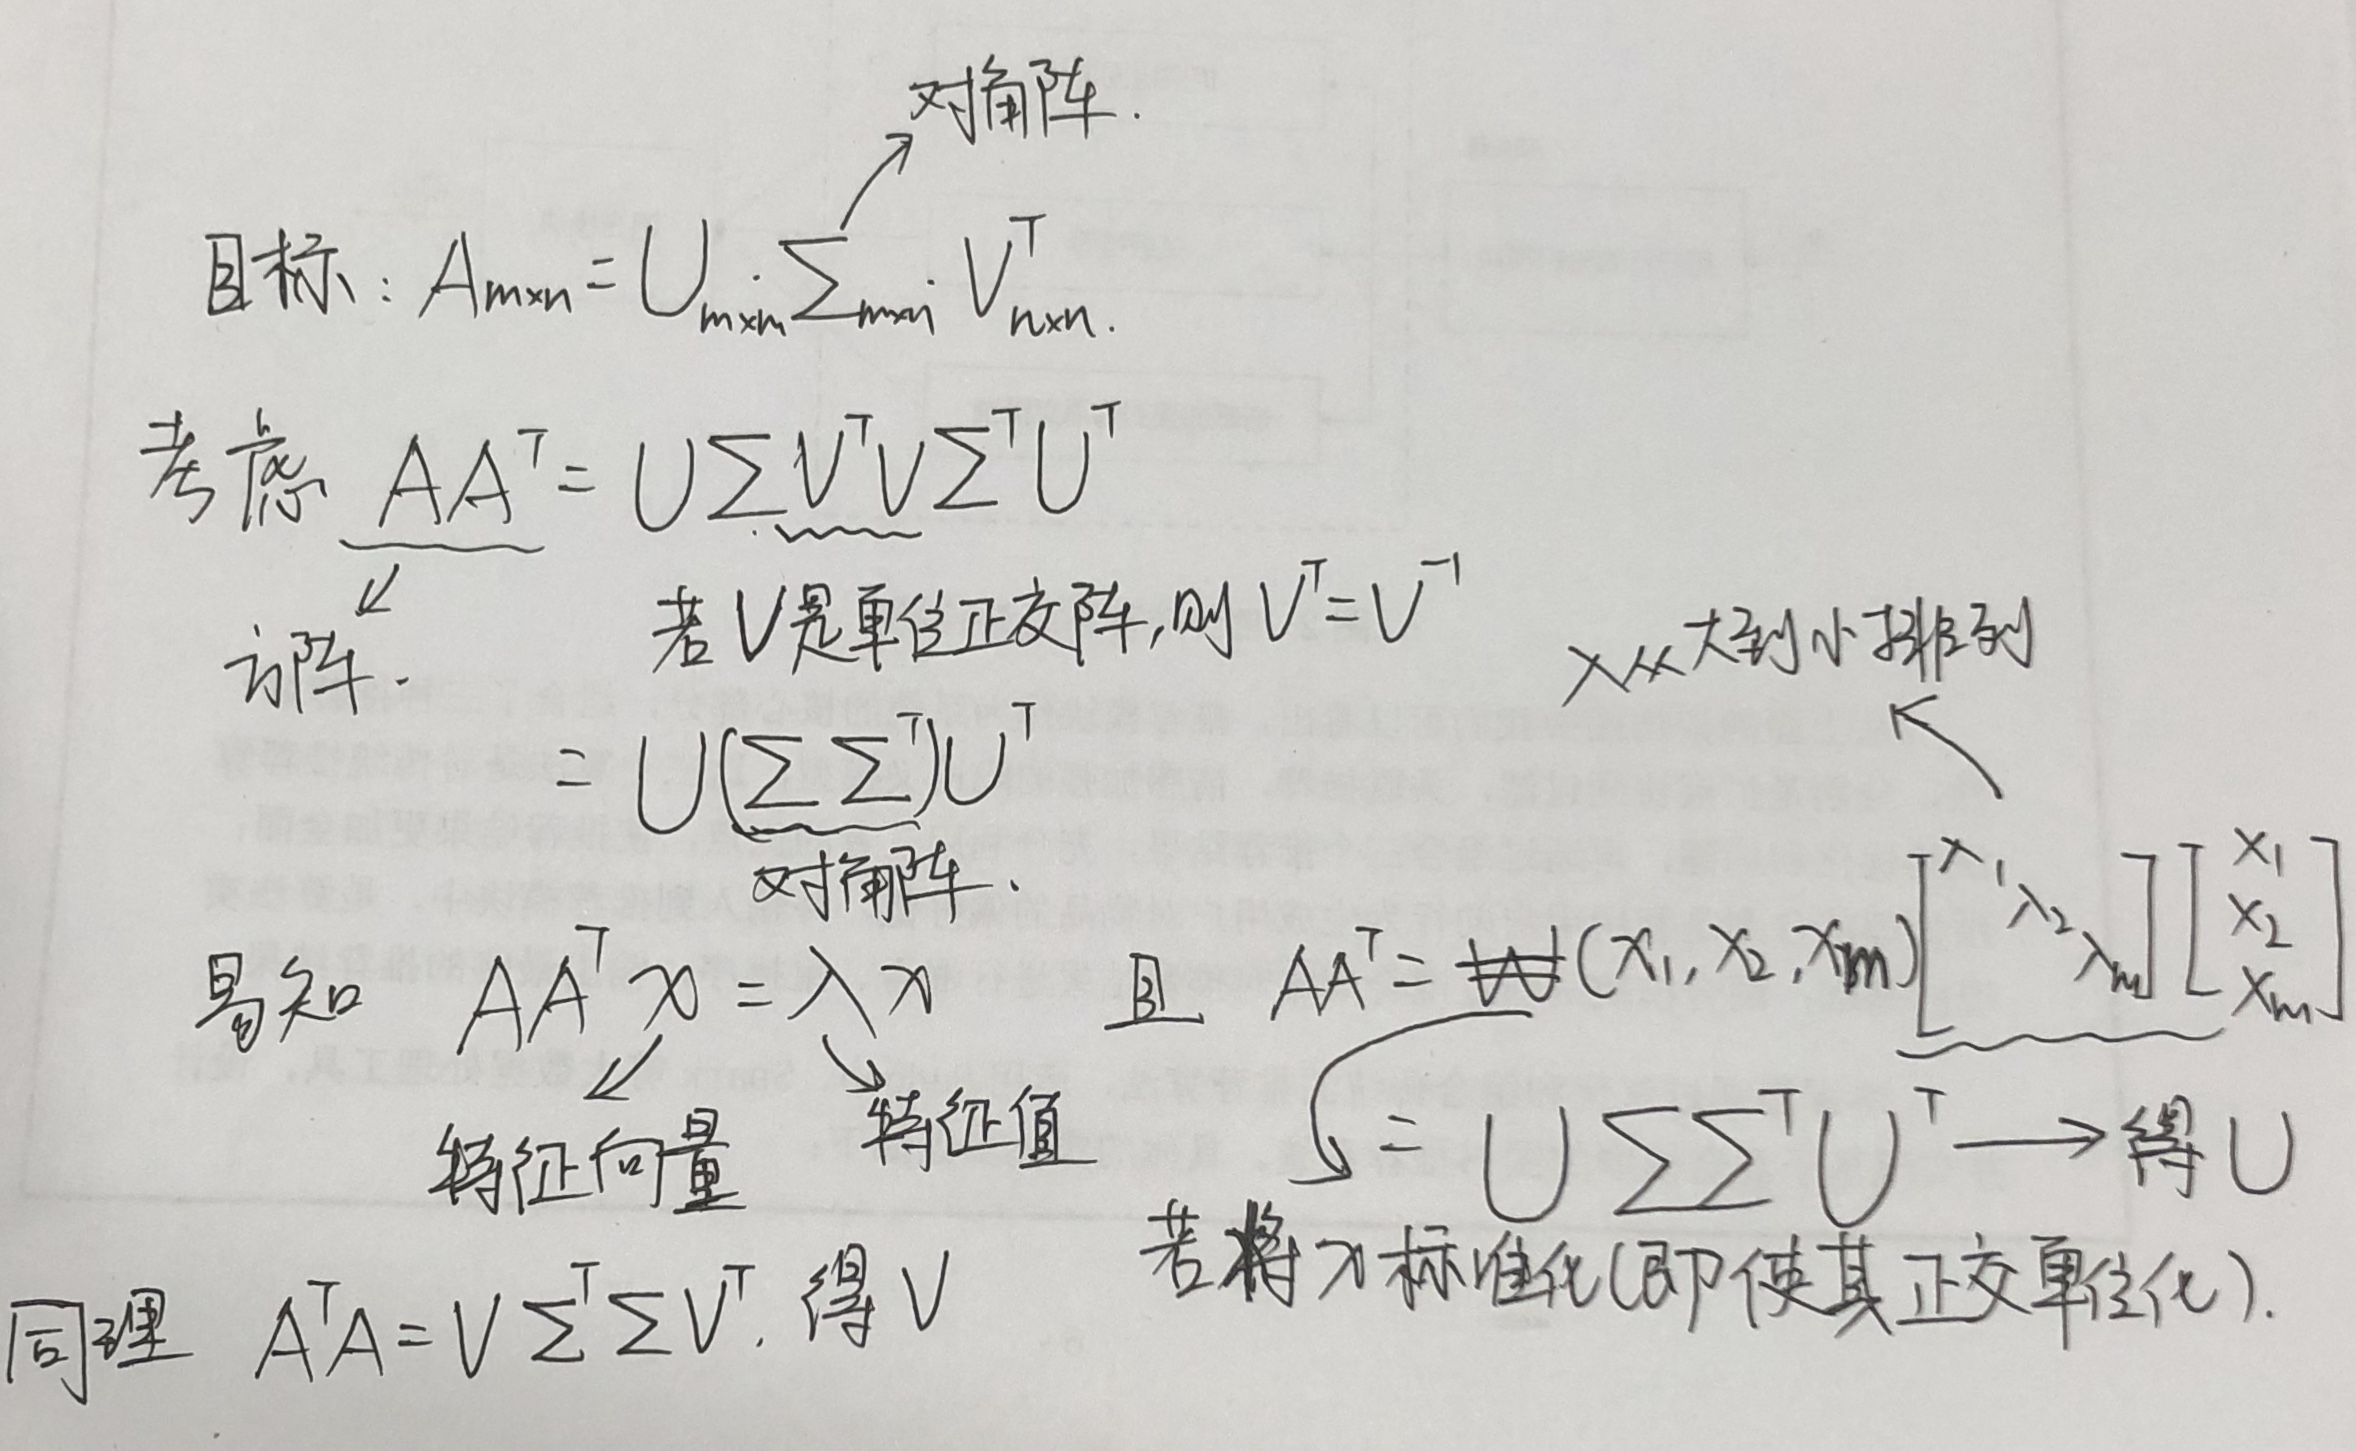 对角阵.
目标: A_{m×n} = U_{m×m} · Σ_{m×n} · V^T_{n×n}.
考虑 AA^T = UΣV^TVΣ^TU^T
方阵.
若V是单位正交阵,则 V^T = V^{-1}
λ从大到小排列
= U(ΣΣ^T)U^T
对角阵.
易知 AA^T x = λx
且 AA^T = (x_1, x_2, x_m) [λ_1 λ_2 λ_m] [x_1 x_2 x_m]
特征向量
特征值
= UΣΣ^TU^T → 得U
若将x标准化(即使其正交单位化).
同理 A^TA = VΣ^TΣV^T. 得V